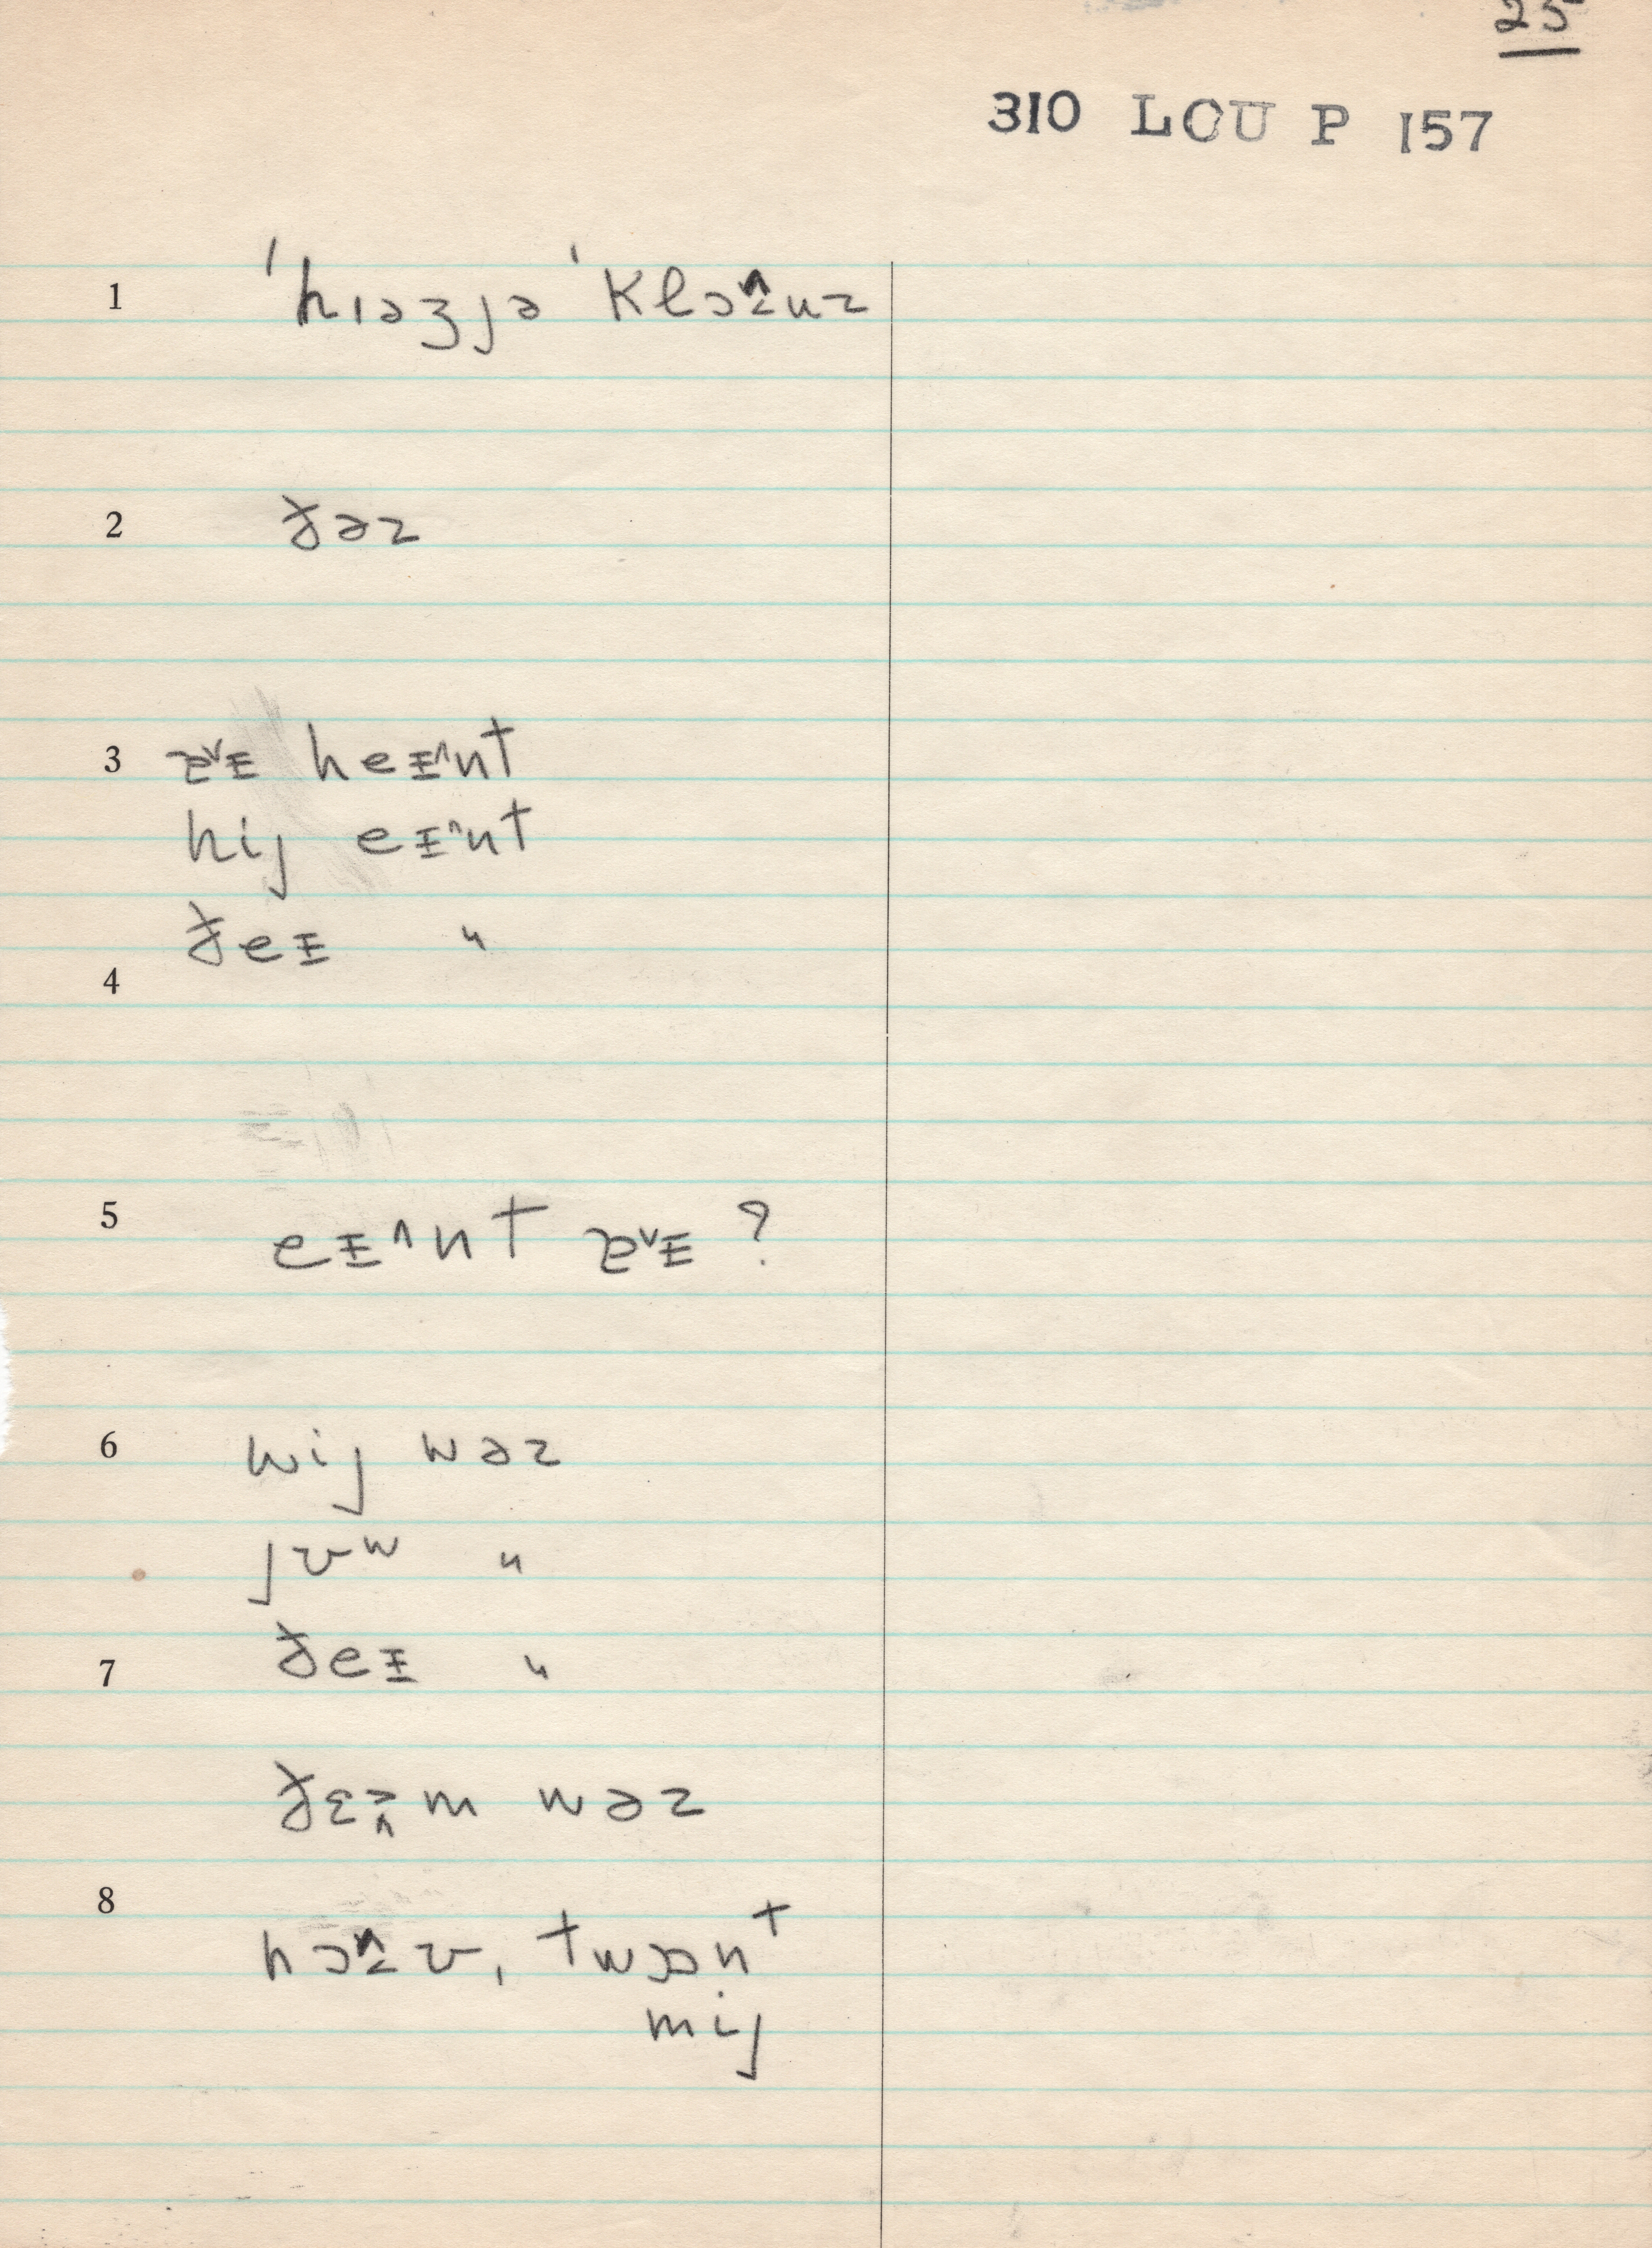 25
310 LCU P 157
1 ˈhɪəʒjə ˈkloɪnz
2 ðəz
3 æᵛɪ heɪnt
hij eɪnt
ðeɪ "
4
5 eɪnt æᵛɪ ?
6 wij wəz
jʊʷ "
7 ðeɪ "
ðɛm wəz
8 noʊ, twɔnt
mij